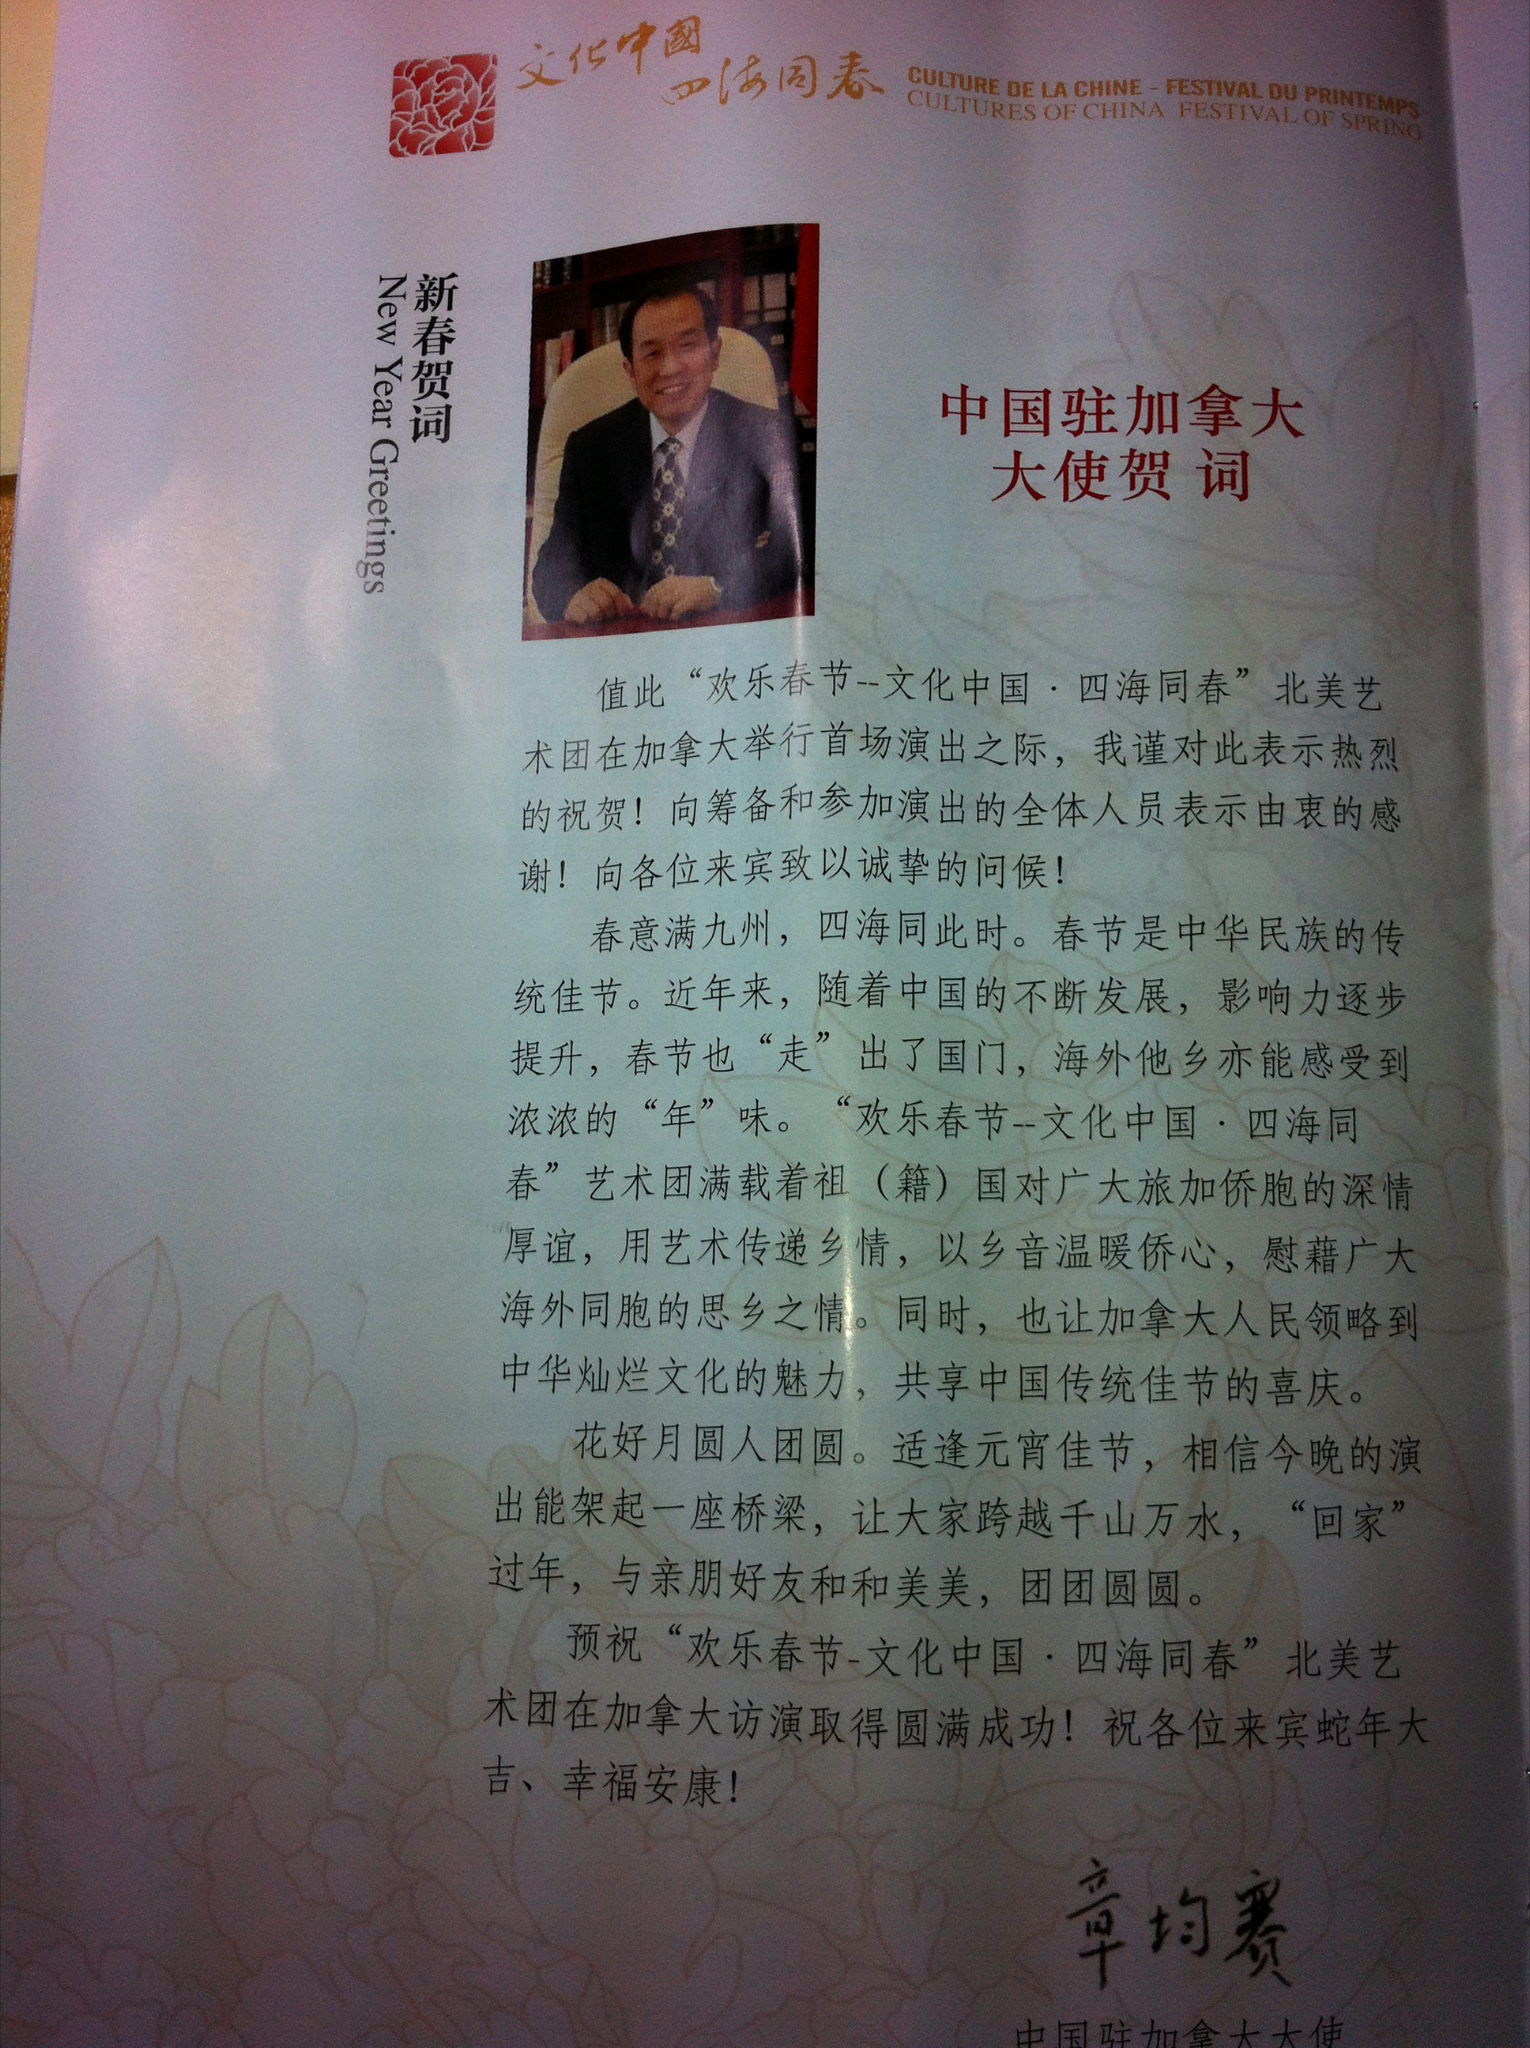 文化中國
四海同春
CULTURE DE LA CHINE - FESTIVAL DU PRINTEMPS
CULTURES OF CHINA FESTIVAL OF SPRING
新春贺词
New Year Greetings
中国驻加拿大
大使贺 词
值此“欢乐春节--文化中国·四海同春”北美艺
术团在加拿大举行首场演出之际，我谨对此表示热烈
的祝贺！向筹备和参加演出的全体人员表示由衷的感
谢！向各位来宾致以诚挚的问候！
春意满九州，四海同此时。春节是中华民族的传
统佳节。近年来，随着中国的不断发展，影响力逐步
提升，春节也“走”出了国门，海外他乡亦能感受到
浓浓的“年”味。“欢乐春节--文化中国·四海同
春”艺术团满载着祖（籍）国对广大旅加侨胞的深情
厚谊，用艺术传递乡情，以乡音温暖侨心，慰藉广大
海外同胞的思乡之情。同时，也让加拿大人民领略到
中华灿烂文化的魅力，共享中国传统佳节的喜庆。
花好月圆人团圆。适逢元宵佳节，相信今晚的演
出能架起一座桥梁，让大家跨越千山万水，“回家”
过年，与亲朋好友和和美美，团团圆圆。
预祝“欢乐春节-文化中国·四海同春”北美艺
术团在加拿大访演取得圆满成功！祝各位来宾蛇年大
吉、幸福安康！
章均赛
中国驻加拿大大使